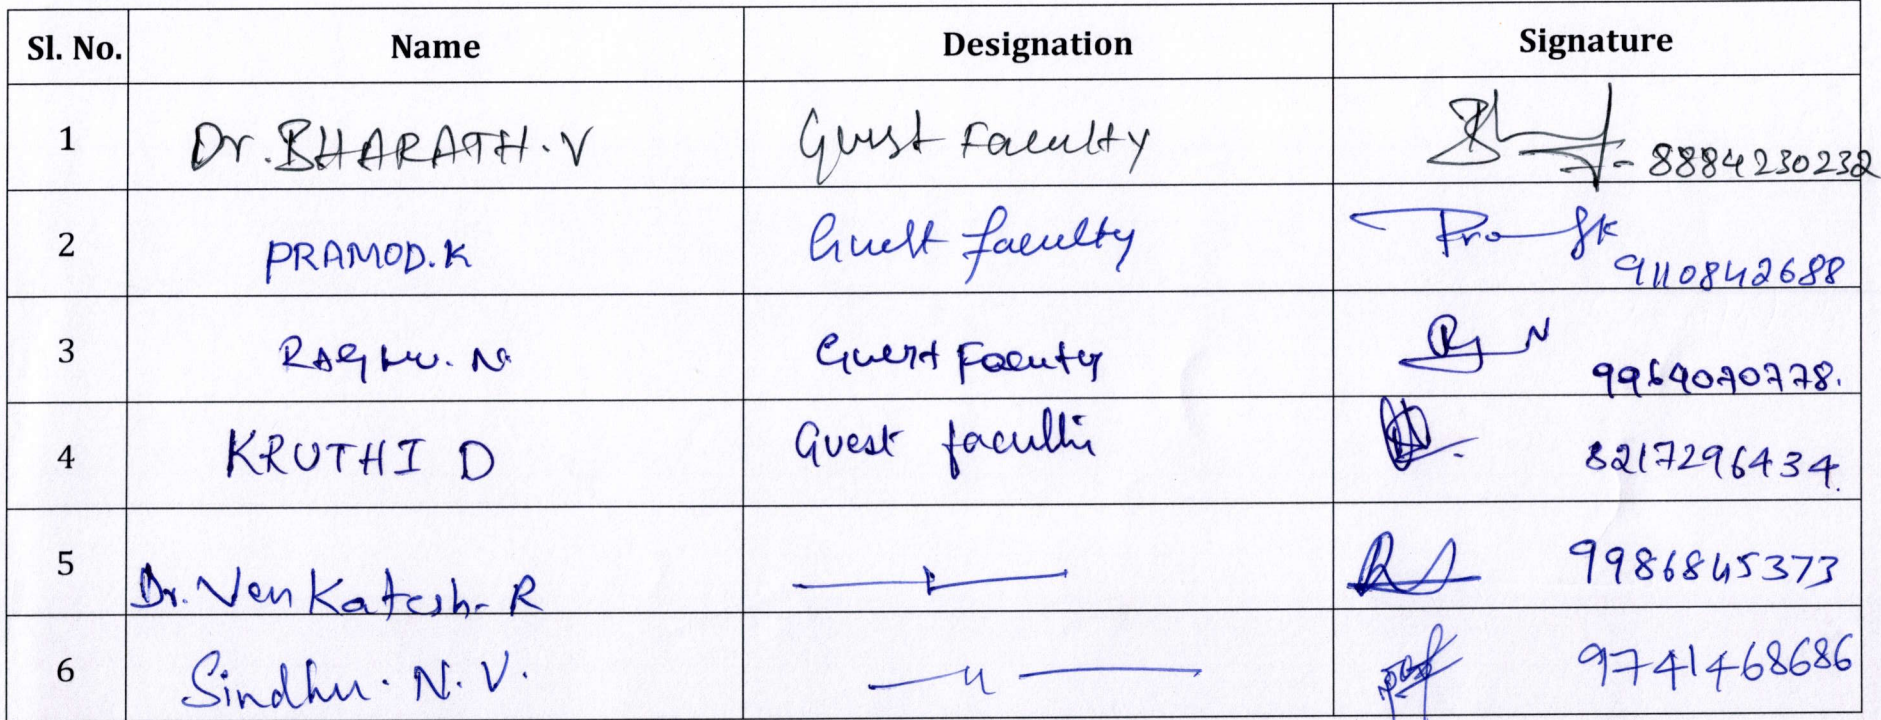 Sl. No. Name Designation Signature
1 Dr. BHARATH. V Guest Faculty - 8884230232
2 PRAMOD. K Guest faculty 9110842688
3 RAGHU. N Guest Faculty 9964070778.
4 KRUTHI D Guest faculti 8217296434.
5 Dr. Venkatesh R 9986845373
6 Sindhu. N. V. — 〃 — 9741468686